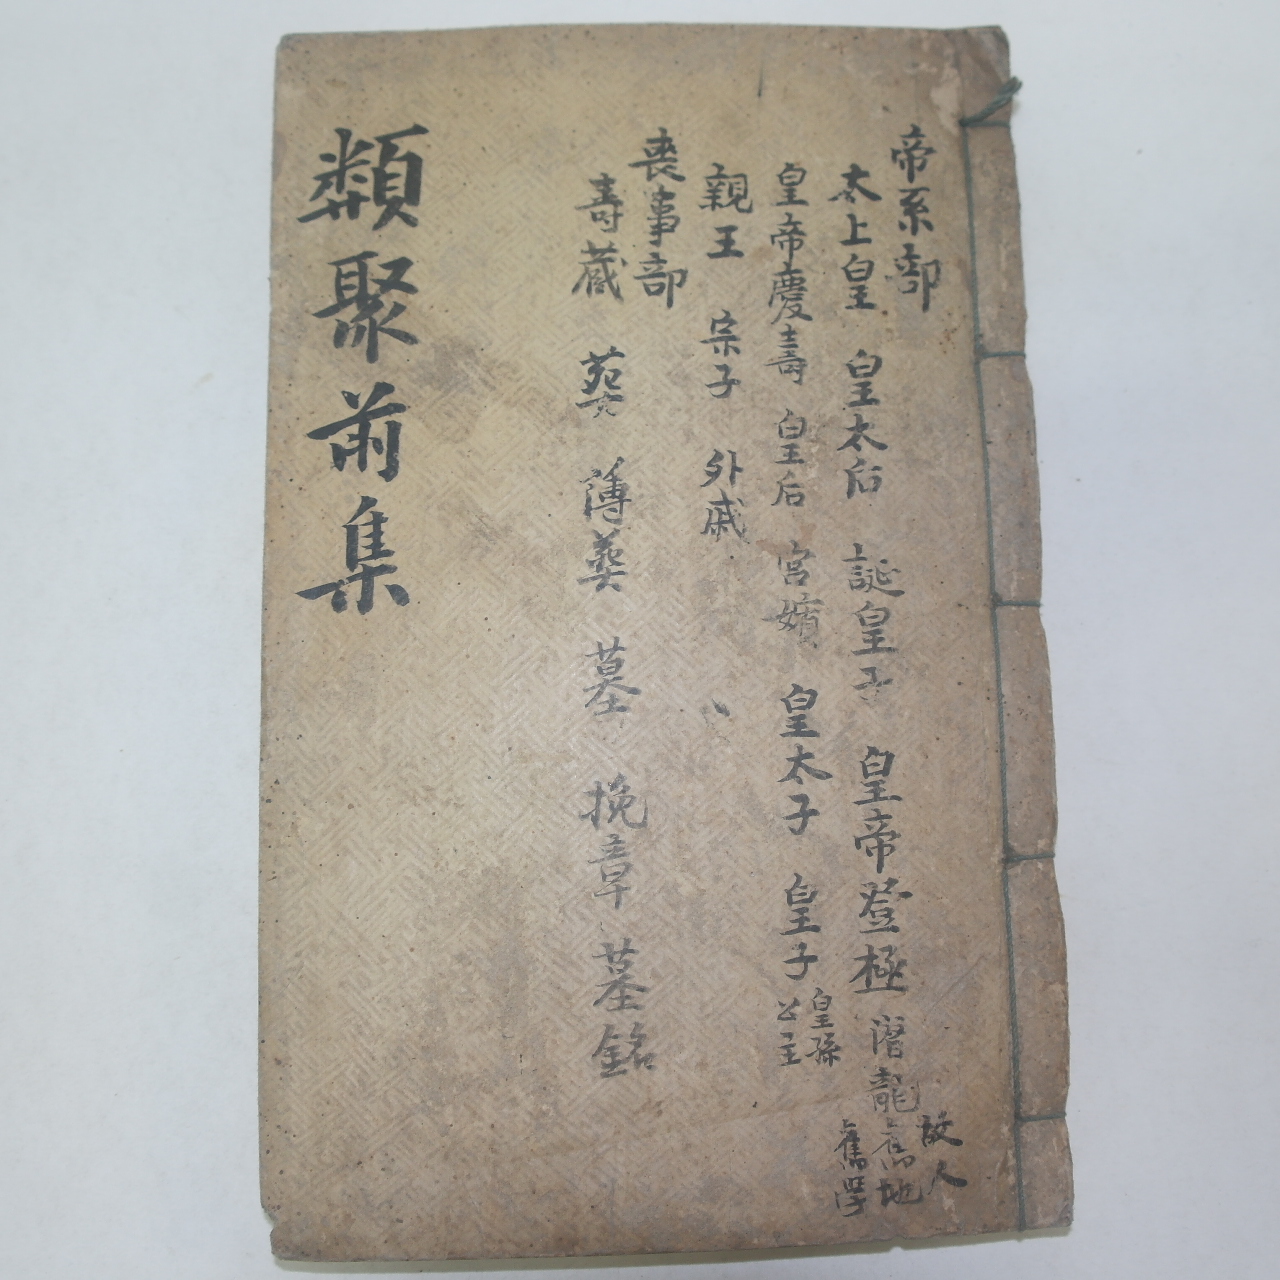 帝系部
太上皇 皇太后 誕皇子 皇帝登極 潛龍 故人 舊地 舊學
皇帝慶壽 皇后 宮嬪 皇太子 皇子 皇孫 公主
親王 宗子 外戚
喪事部
壽藏 葬 薄葬 墓 挽章 墓銘
類聚前集